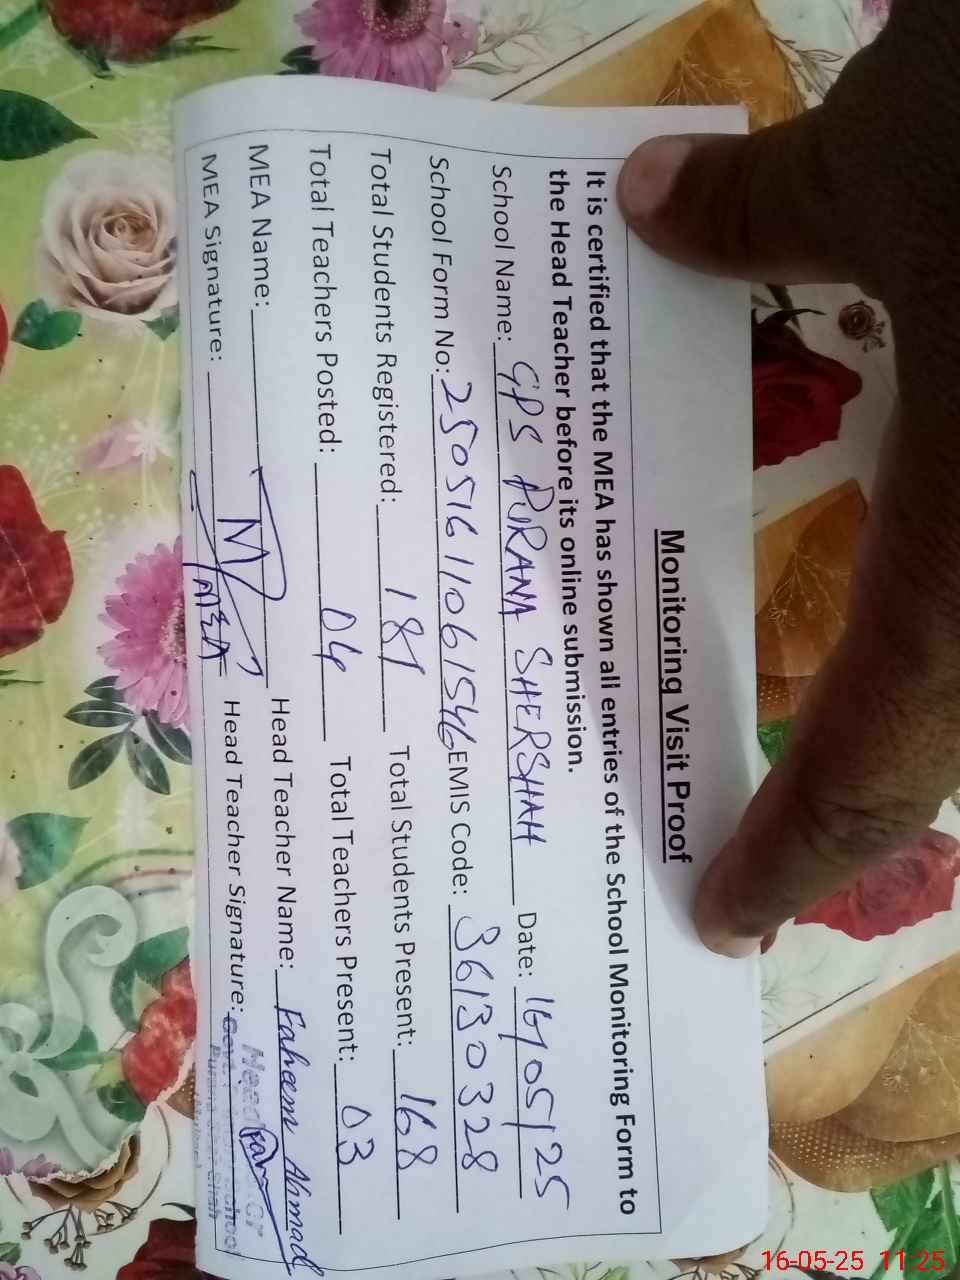 Monitoring Visit Proof
It is certified that the MEA has shown all entries of the School Monitoring Form to
the Head Teacher before its online submission.
School Name: GPS PURANA SHERSHAH Date: 16/05/25
School Form No: 25051611061546 EMIS Code: 36130328
Total Students Registered: 181 Total Students Present: 168
Total Teachers Posted: 04 Total Teachers Present: 03
MEA Name: Head Teacher Name: Faheem Ahmad
MEA Signature: MEA Head Teacher Signature:
16-05-25 11:25